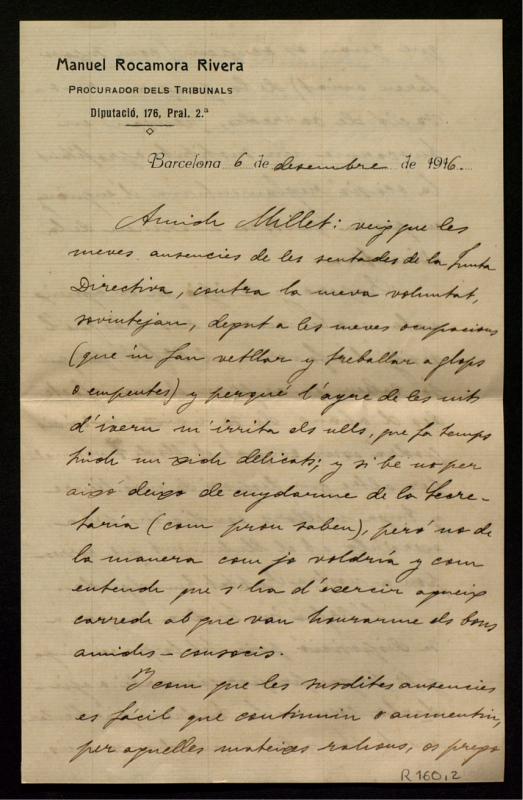 Manuel Rocamora Rivera
PROCURADOR DELS TRIBUNALS
Diputació, 176, Pral. 2.ª
Barcelona 6 de desembre de 1916.
Amich Millet: veig que les
meves ausencies de les sentades de la Junta
Directiva, contra la meva voluntat,
sovintejan, degut a les meves ocupacions
(que 'm fan vetllar y treballar a glops
o empentes) y perqué l'ayre de les nits
d'ivern m'irrita els ulls, que fa temps
tinch un xich delicats; y si be no per
aixó deixo de cuydarme de la Secre-
taría (com prou saben), peró no de
la manera com jo voldría y com
entench que s'ha d'exercir aqueix
carrech ab que van honrarme els bons
amichs - consocis.
I com que les susdites ausencies
es fácil que continuin o aumentin,
per aquelles mateixes rahons, os prego
R 160,2